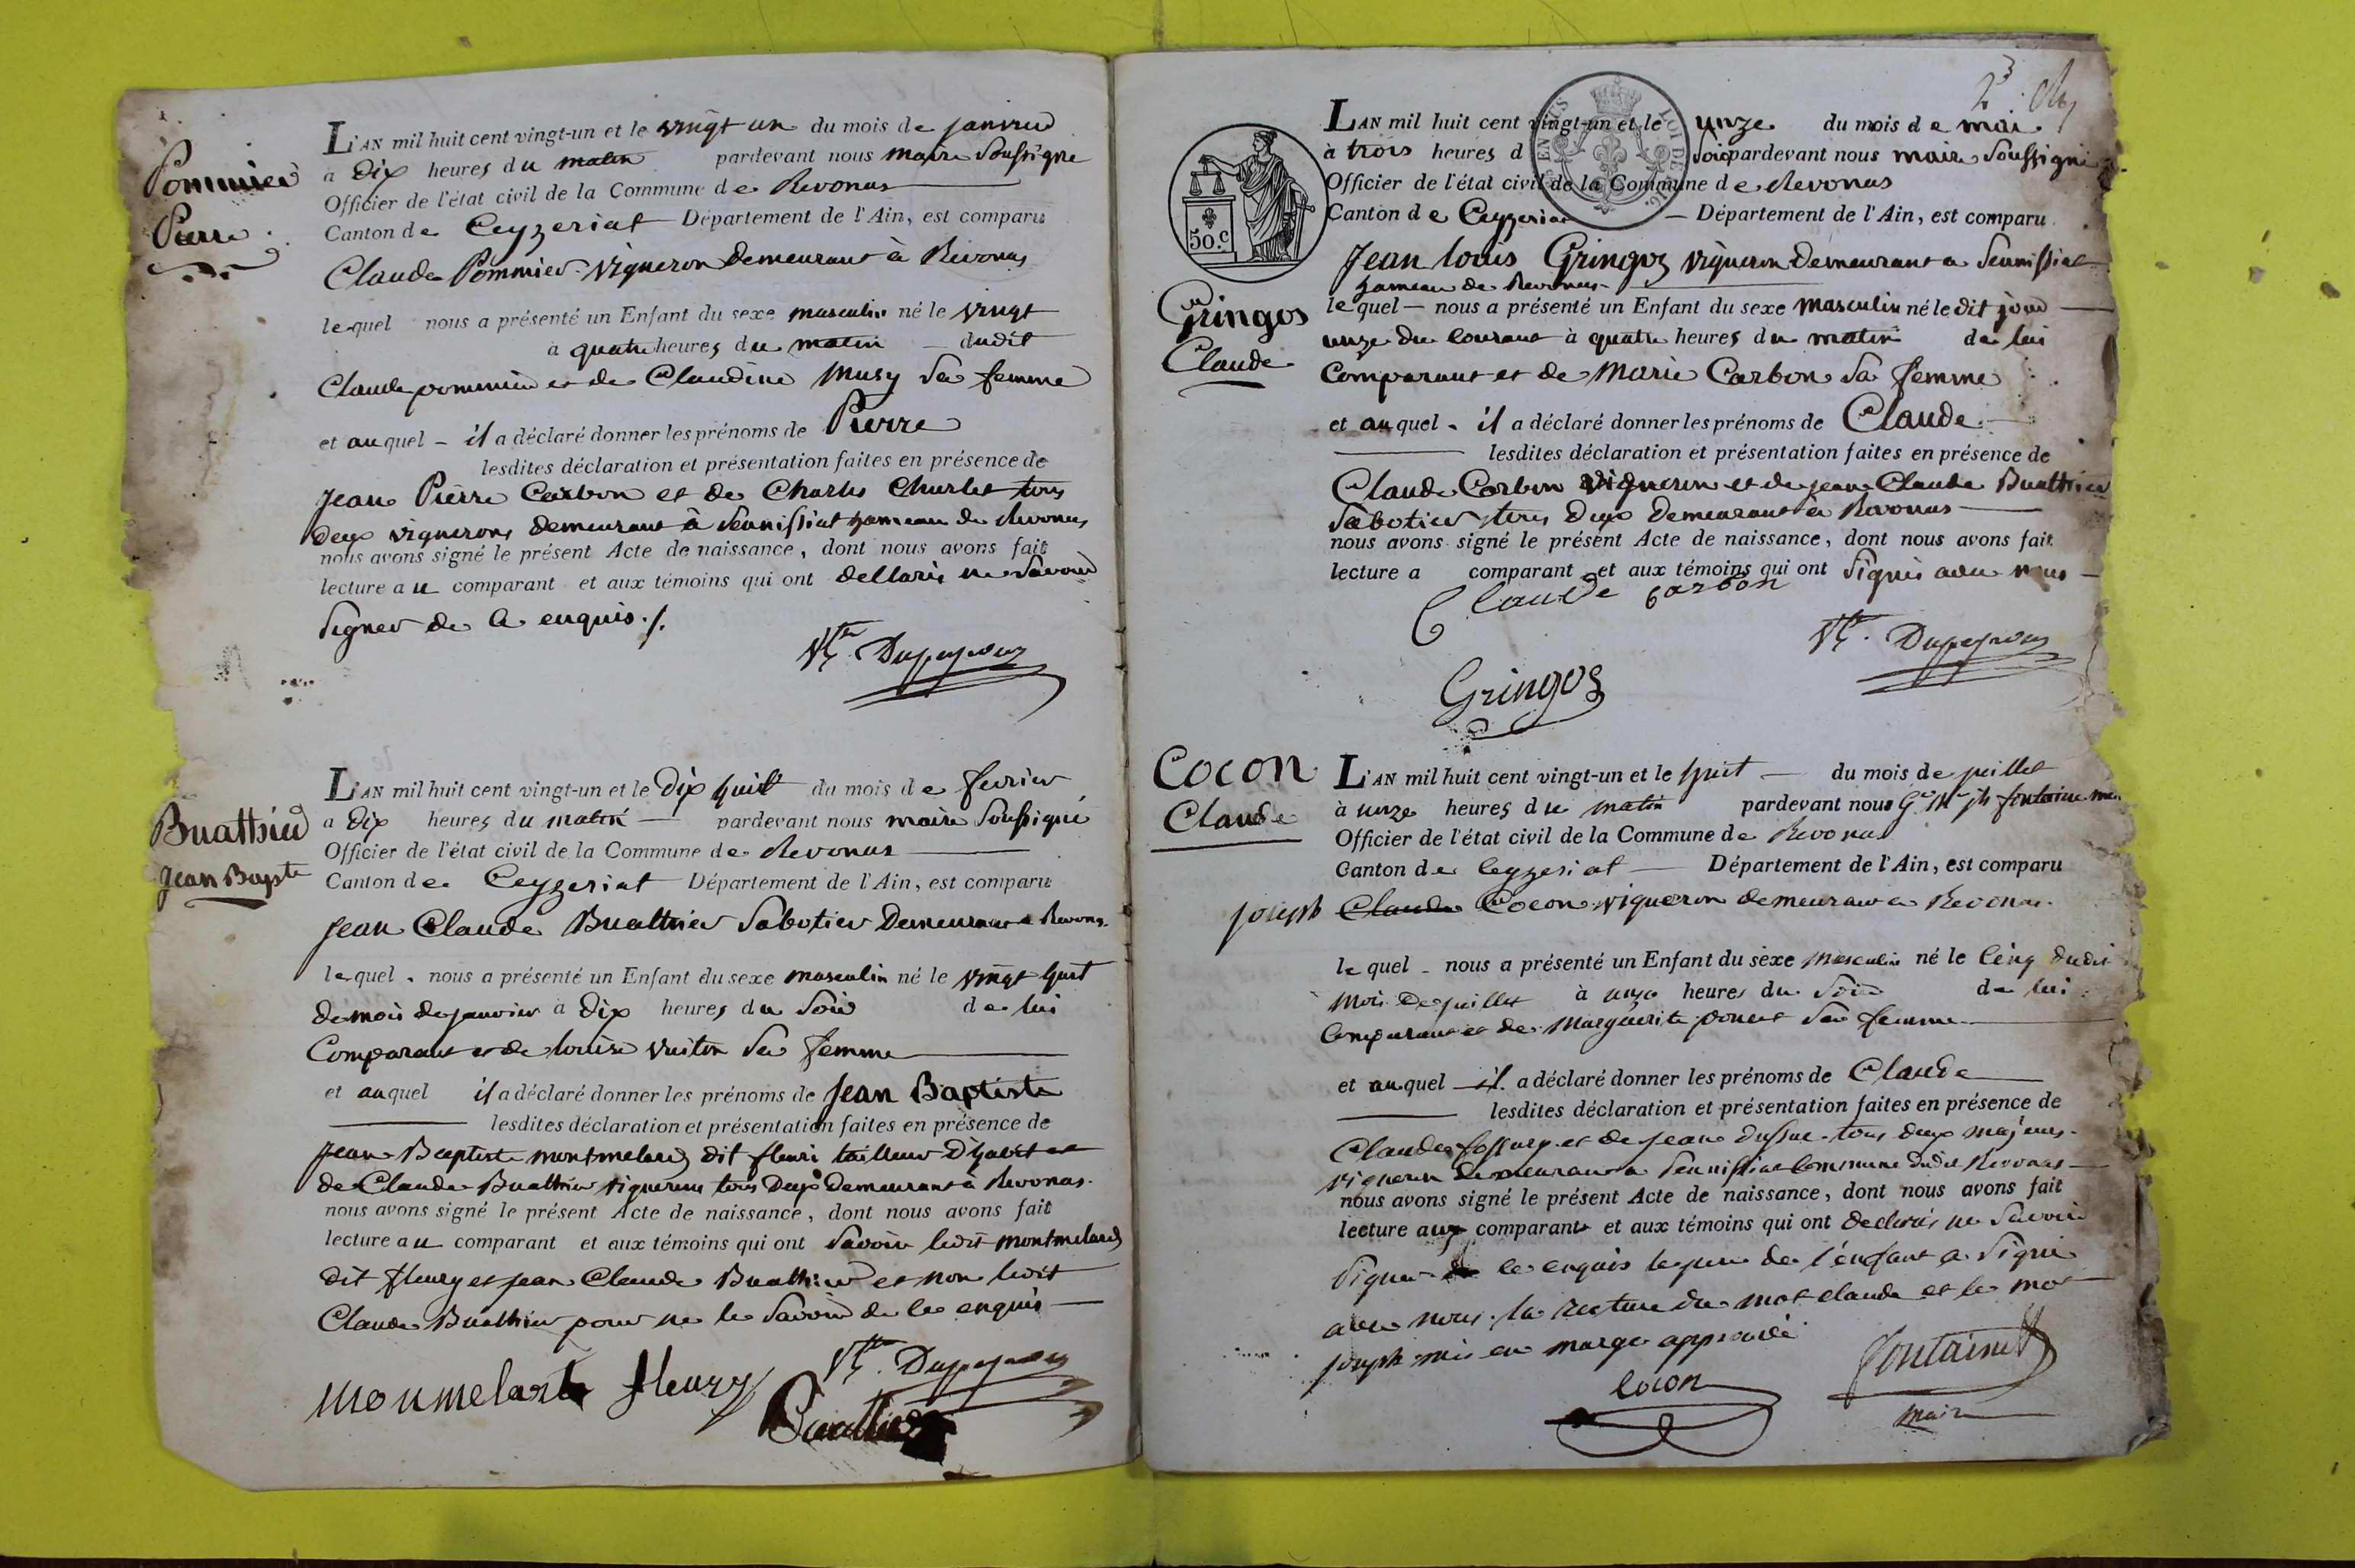 Pommier
Pierre
L'AN mil huit cent vingt-un et le vingt un du mois de janvier
a Dix heures du matin pardevant nous maire Soussigné
Officier de l'état civil de la Commune de Revonas
Canton de Ceyzeriat Département de l'Ain, est comparu
Claude Pommier vigneron Demeurant à Revonas
lequel nous a présenté un Enfant du sexe masculin né le vingt
à quatre heures du matin dudit
Claude pommier et de Claudine Musy Sa femme
et auquel il a déclaré donner les prénoms de Pierre
lesdites déclaration et présentation faites en présence de
Jean Pierre Carbon et de Charles Charlet tous
deux vignerons demeurant à Sennissiat hameau de Revonas
nous avons signé le présent Acte de naissance, dont nous avons fait
lecture au comparant et aux témoins qui ont dellaré ne Savoir
Signer de Ce enquis ./.
Buathier
Jean Bapste
L'AN mil huit cent vingt-un et le Dix huit du mois de fevrier
a Dix heures du matin pardevant nous maire Soussigné
Officier de l'état civil de la Commune de Revonas
Canton de Ceyzeriat Département de l'Ain, est comparu
Jean Claude Buathier Sabotier Demeurant a Revonas
lequel nous a présenté un Enfant du sexe masculin né le vingt huit
de mois de janvier à dix heures du Soir de lui
Comparant et de louise vuiton Sa femme
et auquel il a déclaré donner les prénoms de Jean Baptiste
lesdites déclaration et présentation faites en présence de
Jean Baptiste montmelard dit fleuri tailleur D'habit et
de Claude Buathier vignerons tous Deux Demeurant à Revonas.
nous avons signé le présent Acte de naissance, dont nous avons fait
lecture au comparant et aux témoins qui ont Savoir ledit montmelard
dit fleury et jean Claude Buathier et non ledit
Claude Buathier pour ne le Savoir de ce enquis
monmelart fleury
Buathier
2
L'AN mil huit cent vingt-un et le unze du mois de mai
à trois heures d Soir pardevant nous maire Soussigné
Officier de l'état civil de la Commune de Revonas
Canton de Ceyzeriat Département de l'Ain, est comparu
50.c
Jean louis Gringoz vigneron Demeurant a Sennissiat
hameau de Revonas
Gringos
Claude
lequel nous a présenté un Enfant du sexe masculin né le dit jour
unze du courant à quatre heures du matin de lui
Comparant et de Marie Carbon Sa femme
et auquel il a déclaré donner les prénoms de Claude
lesdites déclaration et présentation faites en présence de
Claude Carbon vigneron et de jean Claude Buathier
Sabotier tous Deux Demeurant à Revonas
nous avons signé le présent Acte de naissance, dont nous avons fait
lecture a comparant et aux témoins qui ont Signés avec nous
Claude carbon
Gringos
Cocon
Claude
L'AN mil huit cent vingt-un et le huit du mois de juillet
à unze heures du matin pardevant nous fontaine
Officier de l'état civil de la Commune de Revonas
Canton de Ceyzeriat Département de l'Ain, est comparu
joseph Claude Cocon vigneron demeurant a Revonas.
lequel nous a présenté un Enfant du sexe masculin né le Cinq dudit
Mois de juillet à unze heures du Soir de lui
Comparant et de Margûerite ponest Sa femme
et auquel il a déclaré donner les prénoms de Claude
lesdites déclaration et présentation faites en présence de
Claude et de jean tous deux majeurs
vigneron demeurant a Sennissiat Commune dudit Revonas
nous avons signé le présent Acte de naissance, dont nous avons fait
lecture aux comparants et aux témoins qui ont declarés ne Savoir
Signer de ce enquis le pere de l'enfant a Signé
avec nous. la du mot claude et le mot
joseph mis en marge approuvé
cocon
fontaine
maire